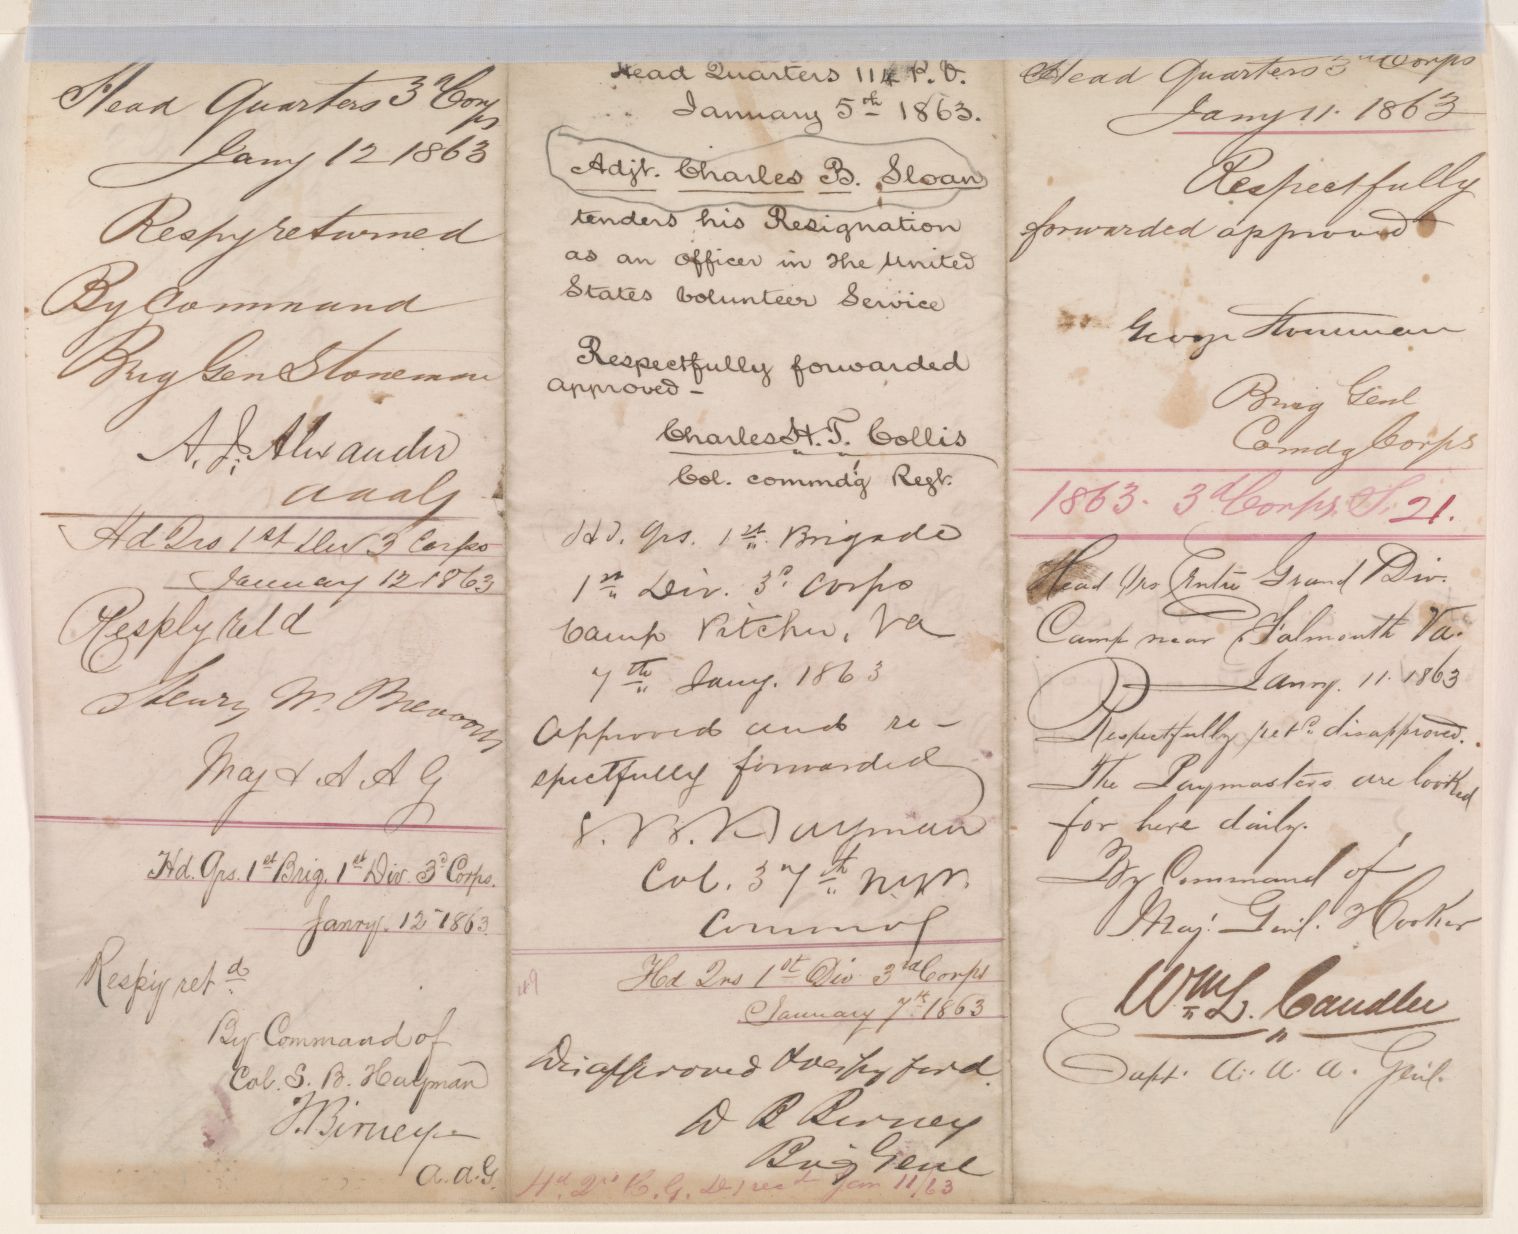 Head Quarters 3d Corps
Jany 12 1863
Respy returned
By Command
Brig Gen Stoneman
A. J. Alexander
A A A G
Hd Qrs 1st Div 3 Corps
January 12 1863
Resply Retd
Henry W. Brevoort
Maj & A A G
Hd. Qrs. 1st Brig. 1st Div. 3d Corps.
Janry. 12 1863
Respy retd
By Command of
Col. S. B. Hayman
F. Birney
A. A. G.
Head Quarters 114 P. V.
January 5th 1863.
Adjt. Charles B. Sloan
tenders his Resignation
as an officer in the United
States Volunteer Service
Respectfully forwarded
approved -
Charles H. T. Collis
Col. commdg Regt.
Hd. Qrs. 1st Brigade
1st Div. 3d Corps
Camp Pitcher, Va
7th Jany. 1863
Approved and re-
spectfully forwarded
S. B. Hayman
Col. 37th N.Y.V.
Commdg
49
Hd Qrs 1st Div 3rd Corps
January 7th 1863
Disapproved & respy ford.
D B Birney
Brig Genl
Hd. Qrs C. G. D. recd Jan 11/63
Head Quarters 3rd Corps
Jany 11. 1863
Respectfully
forwarded approved
George Stoneman
Brig Genl
Comdg Corps
1863. 3d Corps. S. 21.
Head Qrs Centre Grand Div.
Camp near Falmouth Va.
Janry. 11. 1863
Respectfully retd disapproved.
The Paymasters are looked
for here daily.
By Command of
Maj. Genl. Hooker
Wm L. Candler
Capt. A. A. A. Genl.